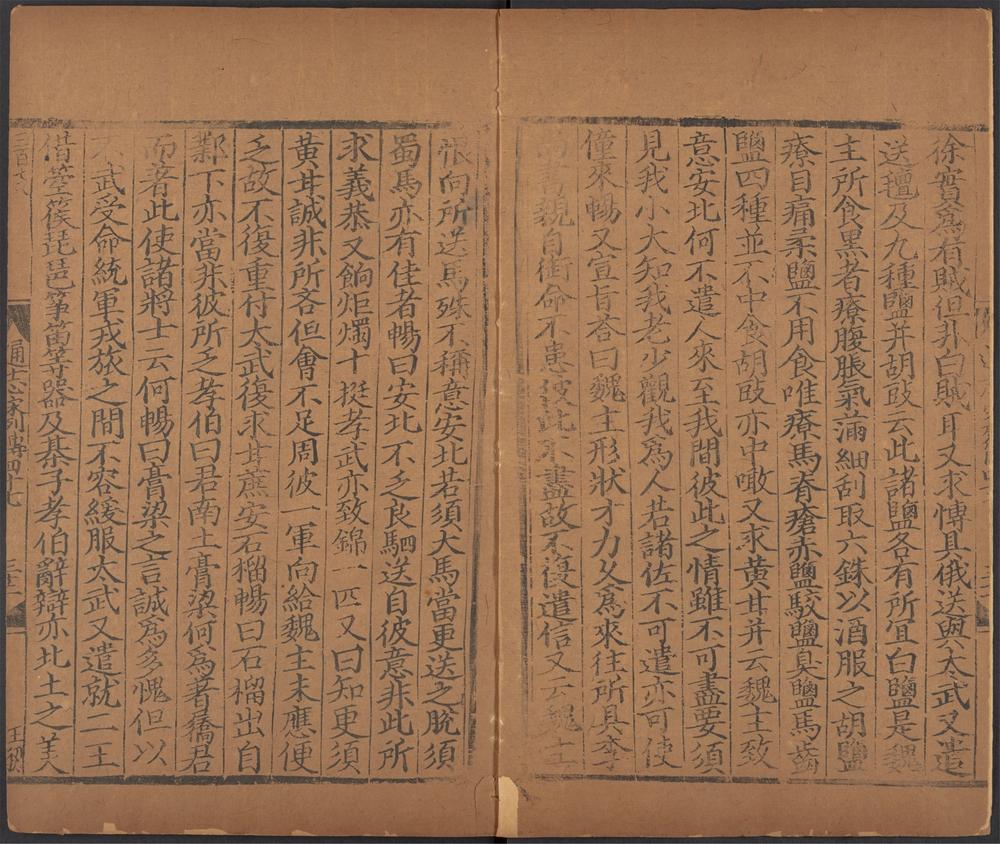 徐實爲有賊但非白賊耳又求博具俄送與太武又遣
送氊及九種鹽并胡豉云此諸鹽各有所宜白鹽是魏
主所食黑者療腹脹氣滿細刮取六銖以酒服之胡鹽
療目痛柔鹽不用食唯療馬脊瘡赤鹽駮鹽臭鹽馬齒
鹽四種並不中食胡豉亦中噉又求黃甘并云魏主致
意安北何不遣人來至我間彼此之情雖不可盡要須
見我小大知我老少觀我爲人若諸佐不可遣亦可使
僮來暢又宣旨荅曰魏主形狀才力久爲來往所具李
尚書親自銜命不患彼此不盡故不復遣信又云魏主
恨向所送馬殊不稱意安北若須大馬當更送之脫須
蜀馬亦有佳者暢曰安北不乏良駟送自彼意非此所
求義恭又餉炬燭十挺孝武亦致錦一匹又曰知更須
黃甘誠非所吝但會不足周彼一軍向給魏主未應便
乏故不復重付太武復求甘蔗安石榴暢曰石榴出自
鄴下亦當非彼所乏孝伯曰君南土膏粱何爲著屩君
而著此使諸將士云何暢曰膏粱之言誠爲多愧但以
不武受命統軍戎旅之間不容緩服太武又遣就二王
借箜篌琵琶箏笛等器及棊子孝伯辭辯亦北土之美
通志家列傳四十七